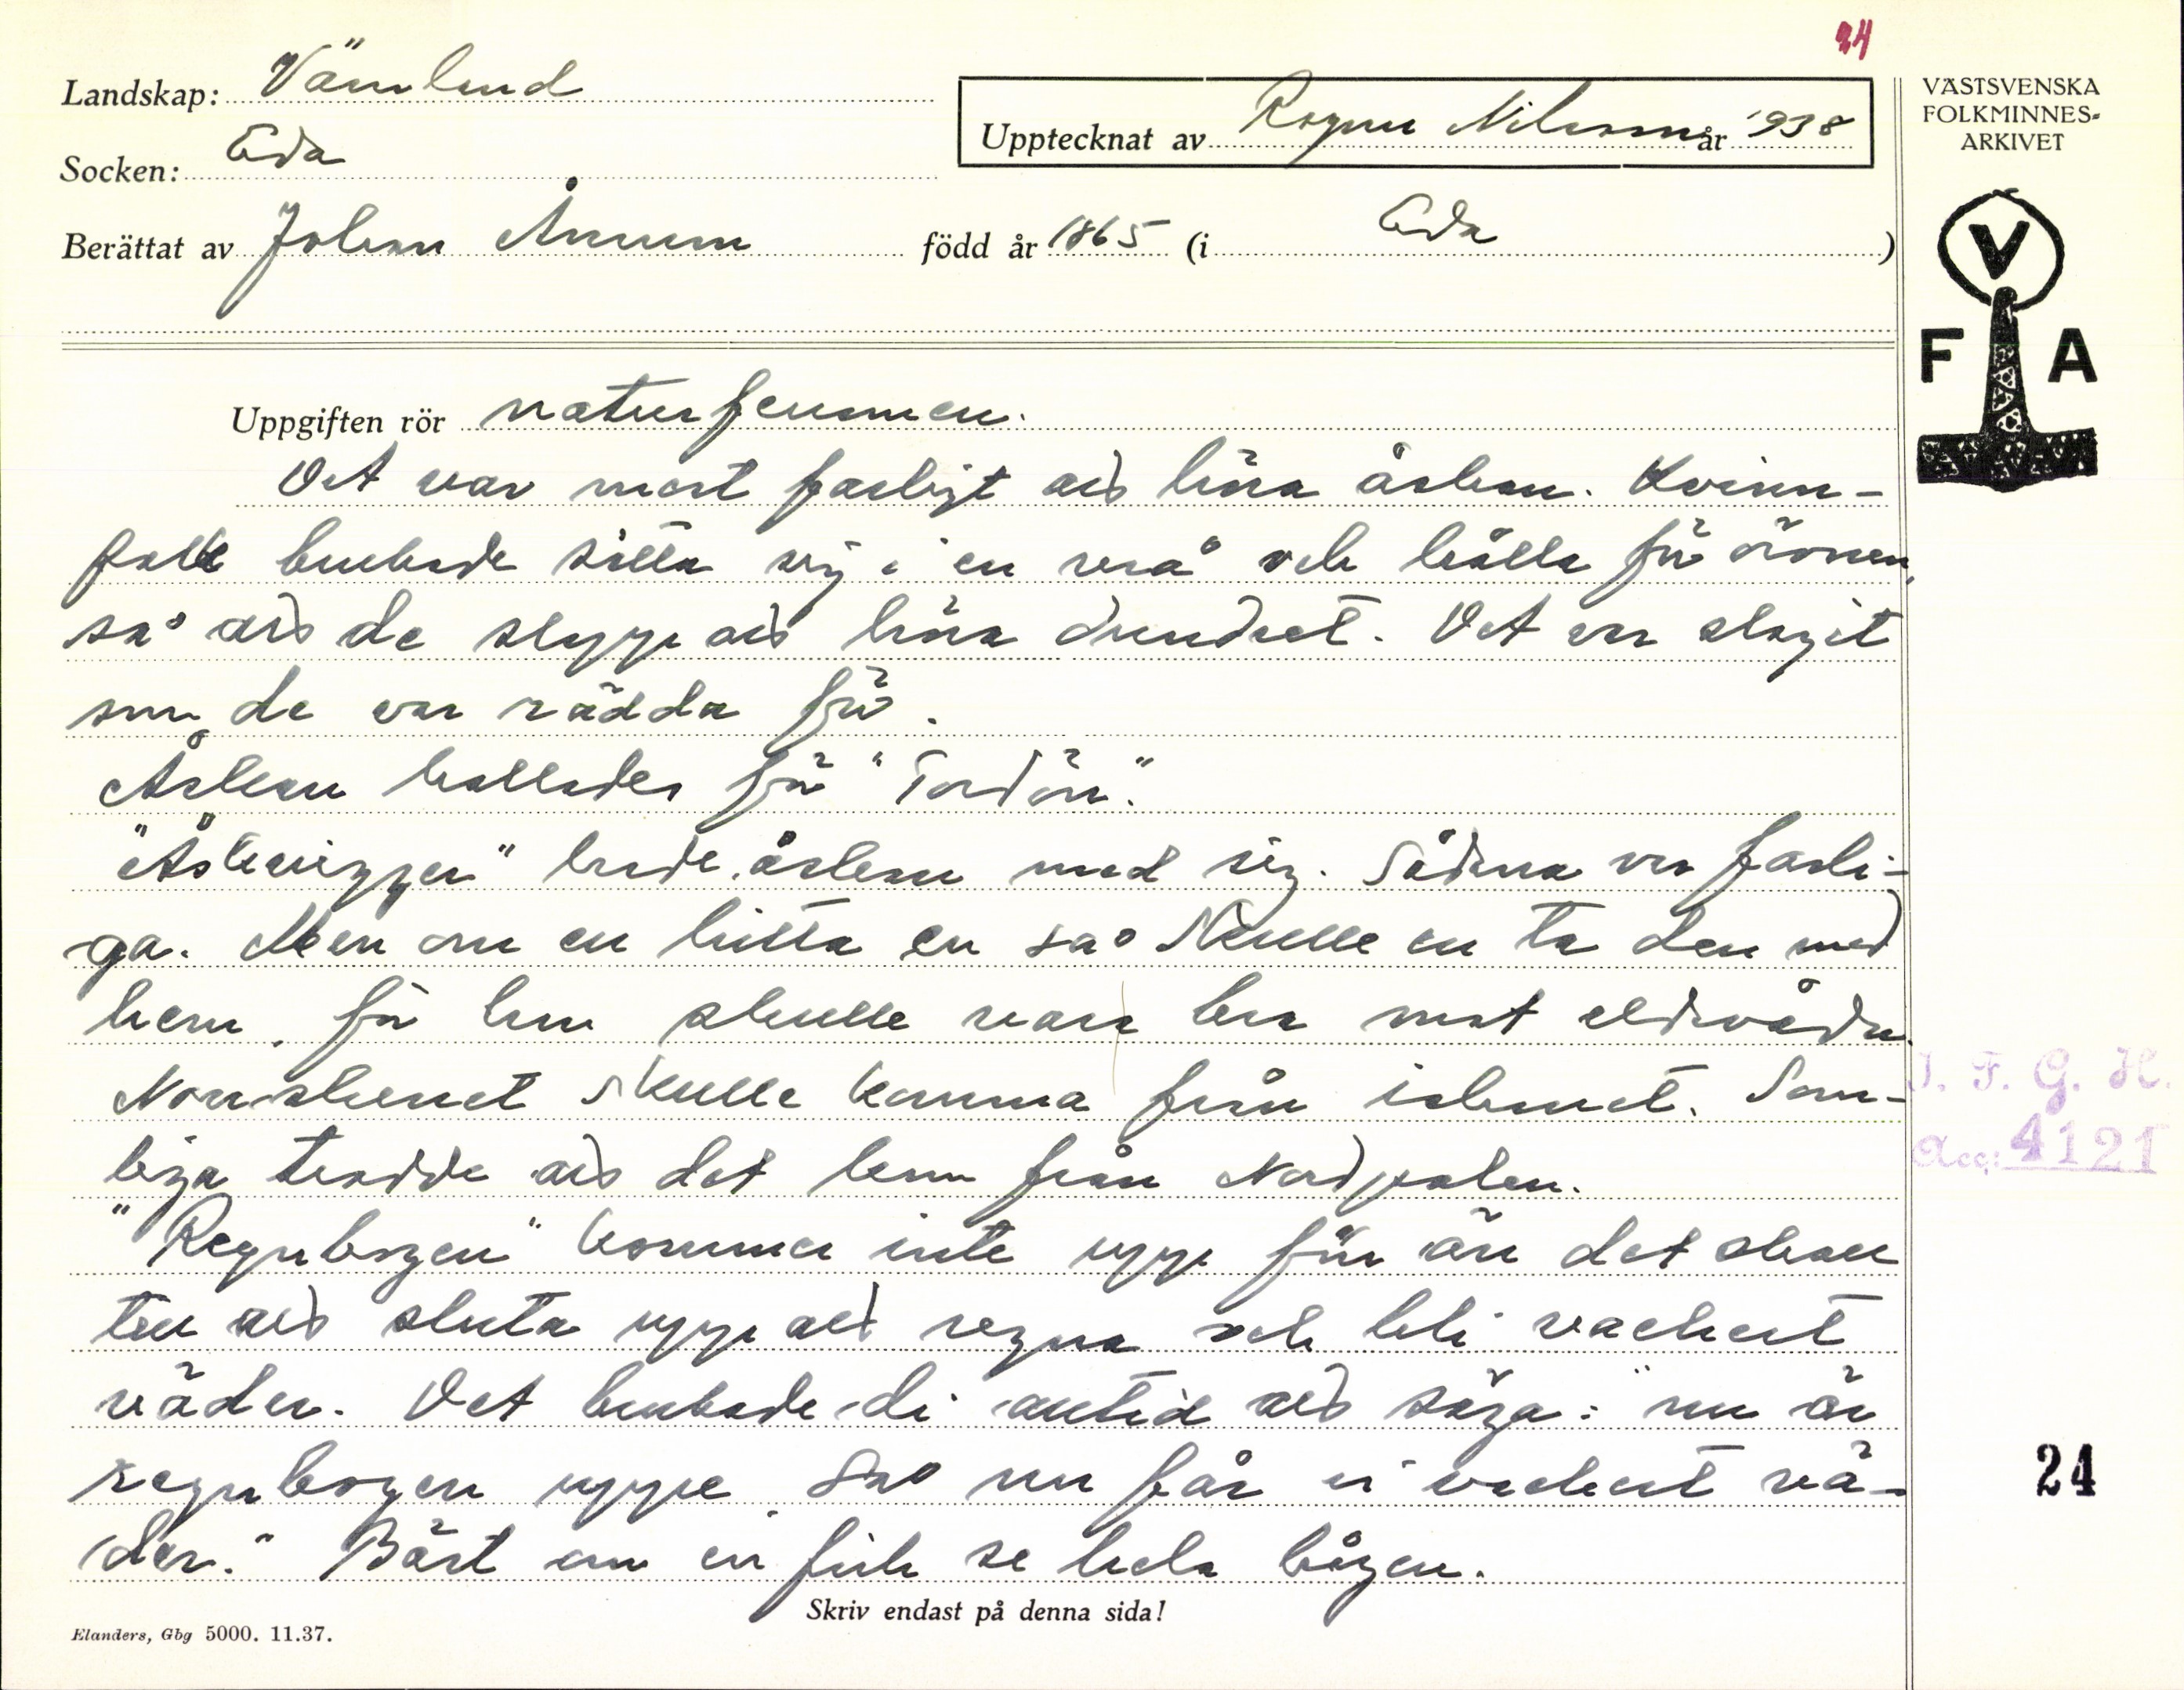 24
Landskap: Värmland
Upptecknat av Ragnar Nilsson år 1938
VÄSTSVENSKA
FOLKMINNES-
ARKIVET
Socken: Eda
Berättat av Johan född år 1865 (i Eda)
V
F A
Uppgiften rör naturfenomen.
Det var mest farligt að höra åskan. Kvinn-
folk brukade sätta sig i en vrå och hålla för öronen,
så að de slapp að höra dundret. Det var slaget
som de var rädda för.
Åskan kallades för "Tordön".
"Åskviggar" hade åskan med sig. Sådana var farli-
ga. Men om en hitta en så skulle en ta den med
hem, för hon skulle vara bra mot eldsvåda.
Norrskenet skulle komma från ishavet. Som-
liga trodde að det kom från Nordpolen.
"Regnbogen" kommer inte upp förr än det skall
te að sluta upp að regna och bli vackert
väder. Det brukade di alltid að säga: "nu är
regnbogen uppe, så nu får vi vackert vä-
der." Bäst om en fick se hela bågen.
I. F. G. H.
Acc: 4121
24
Skriv endast på denna sida!
Elanders, Gbg 5000. 11.37.